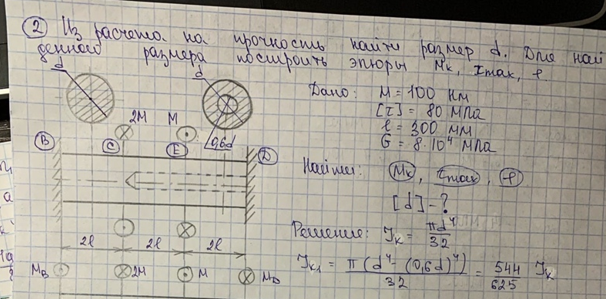 ② Из расчета на прочность найти размер d. Для най
денного размера построить эпюры Mк, τmax, φ
d
d
2M
M
0,6d
B
C
E
D
Дано: M = 100 Нм
[τ] = 80 МПа
ℓ = 300 мм
G = 8·10⁴ МПа
Найти: Mк, τmax, φ
[d] - ?
Решение: Jк = πd⁴/32
Jк₁ = π(d⁴ - (0,6d)⁴)/32 = 544/625 Jк
2ℓ
2ℓ
2ℓ
MB
2M
M
MD